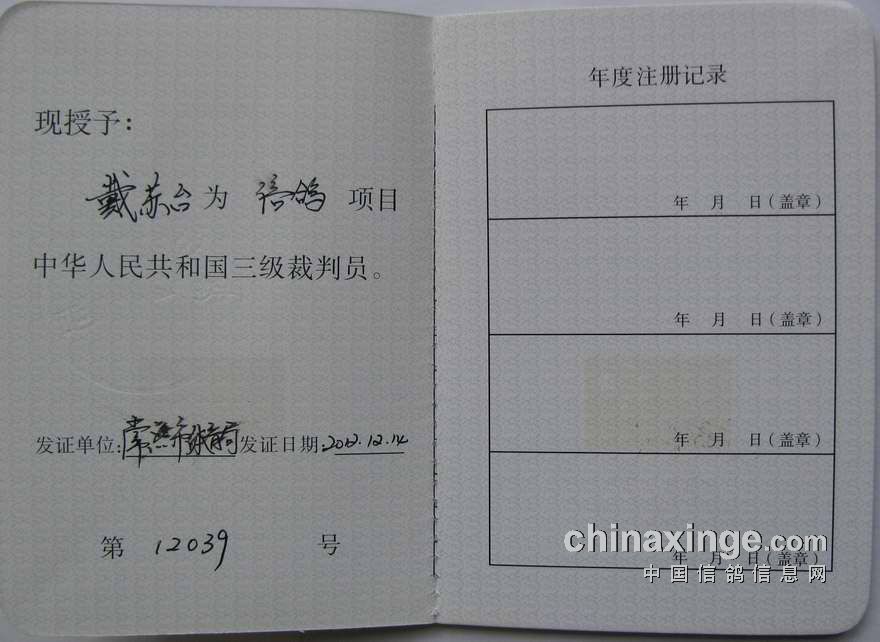 现授予：
戴苏台为 信鸽 项目
中华人民共和国三级裁判员。
发证单位：常熟市体育局 发证日期：2012.12.14
第 12039 号
年度注册记录
年 月 日（盖章）
年 月 日（盖章）
年 月 日（盖章）
年 月 日（盖章）
chinaxinge.com
中国信鸽信息网